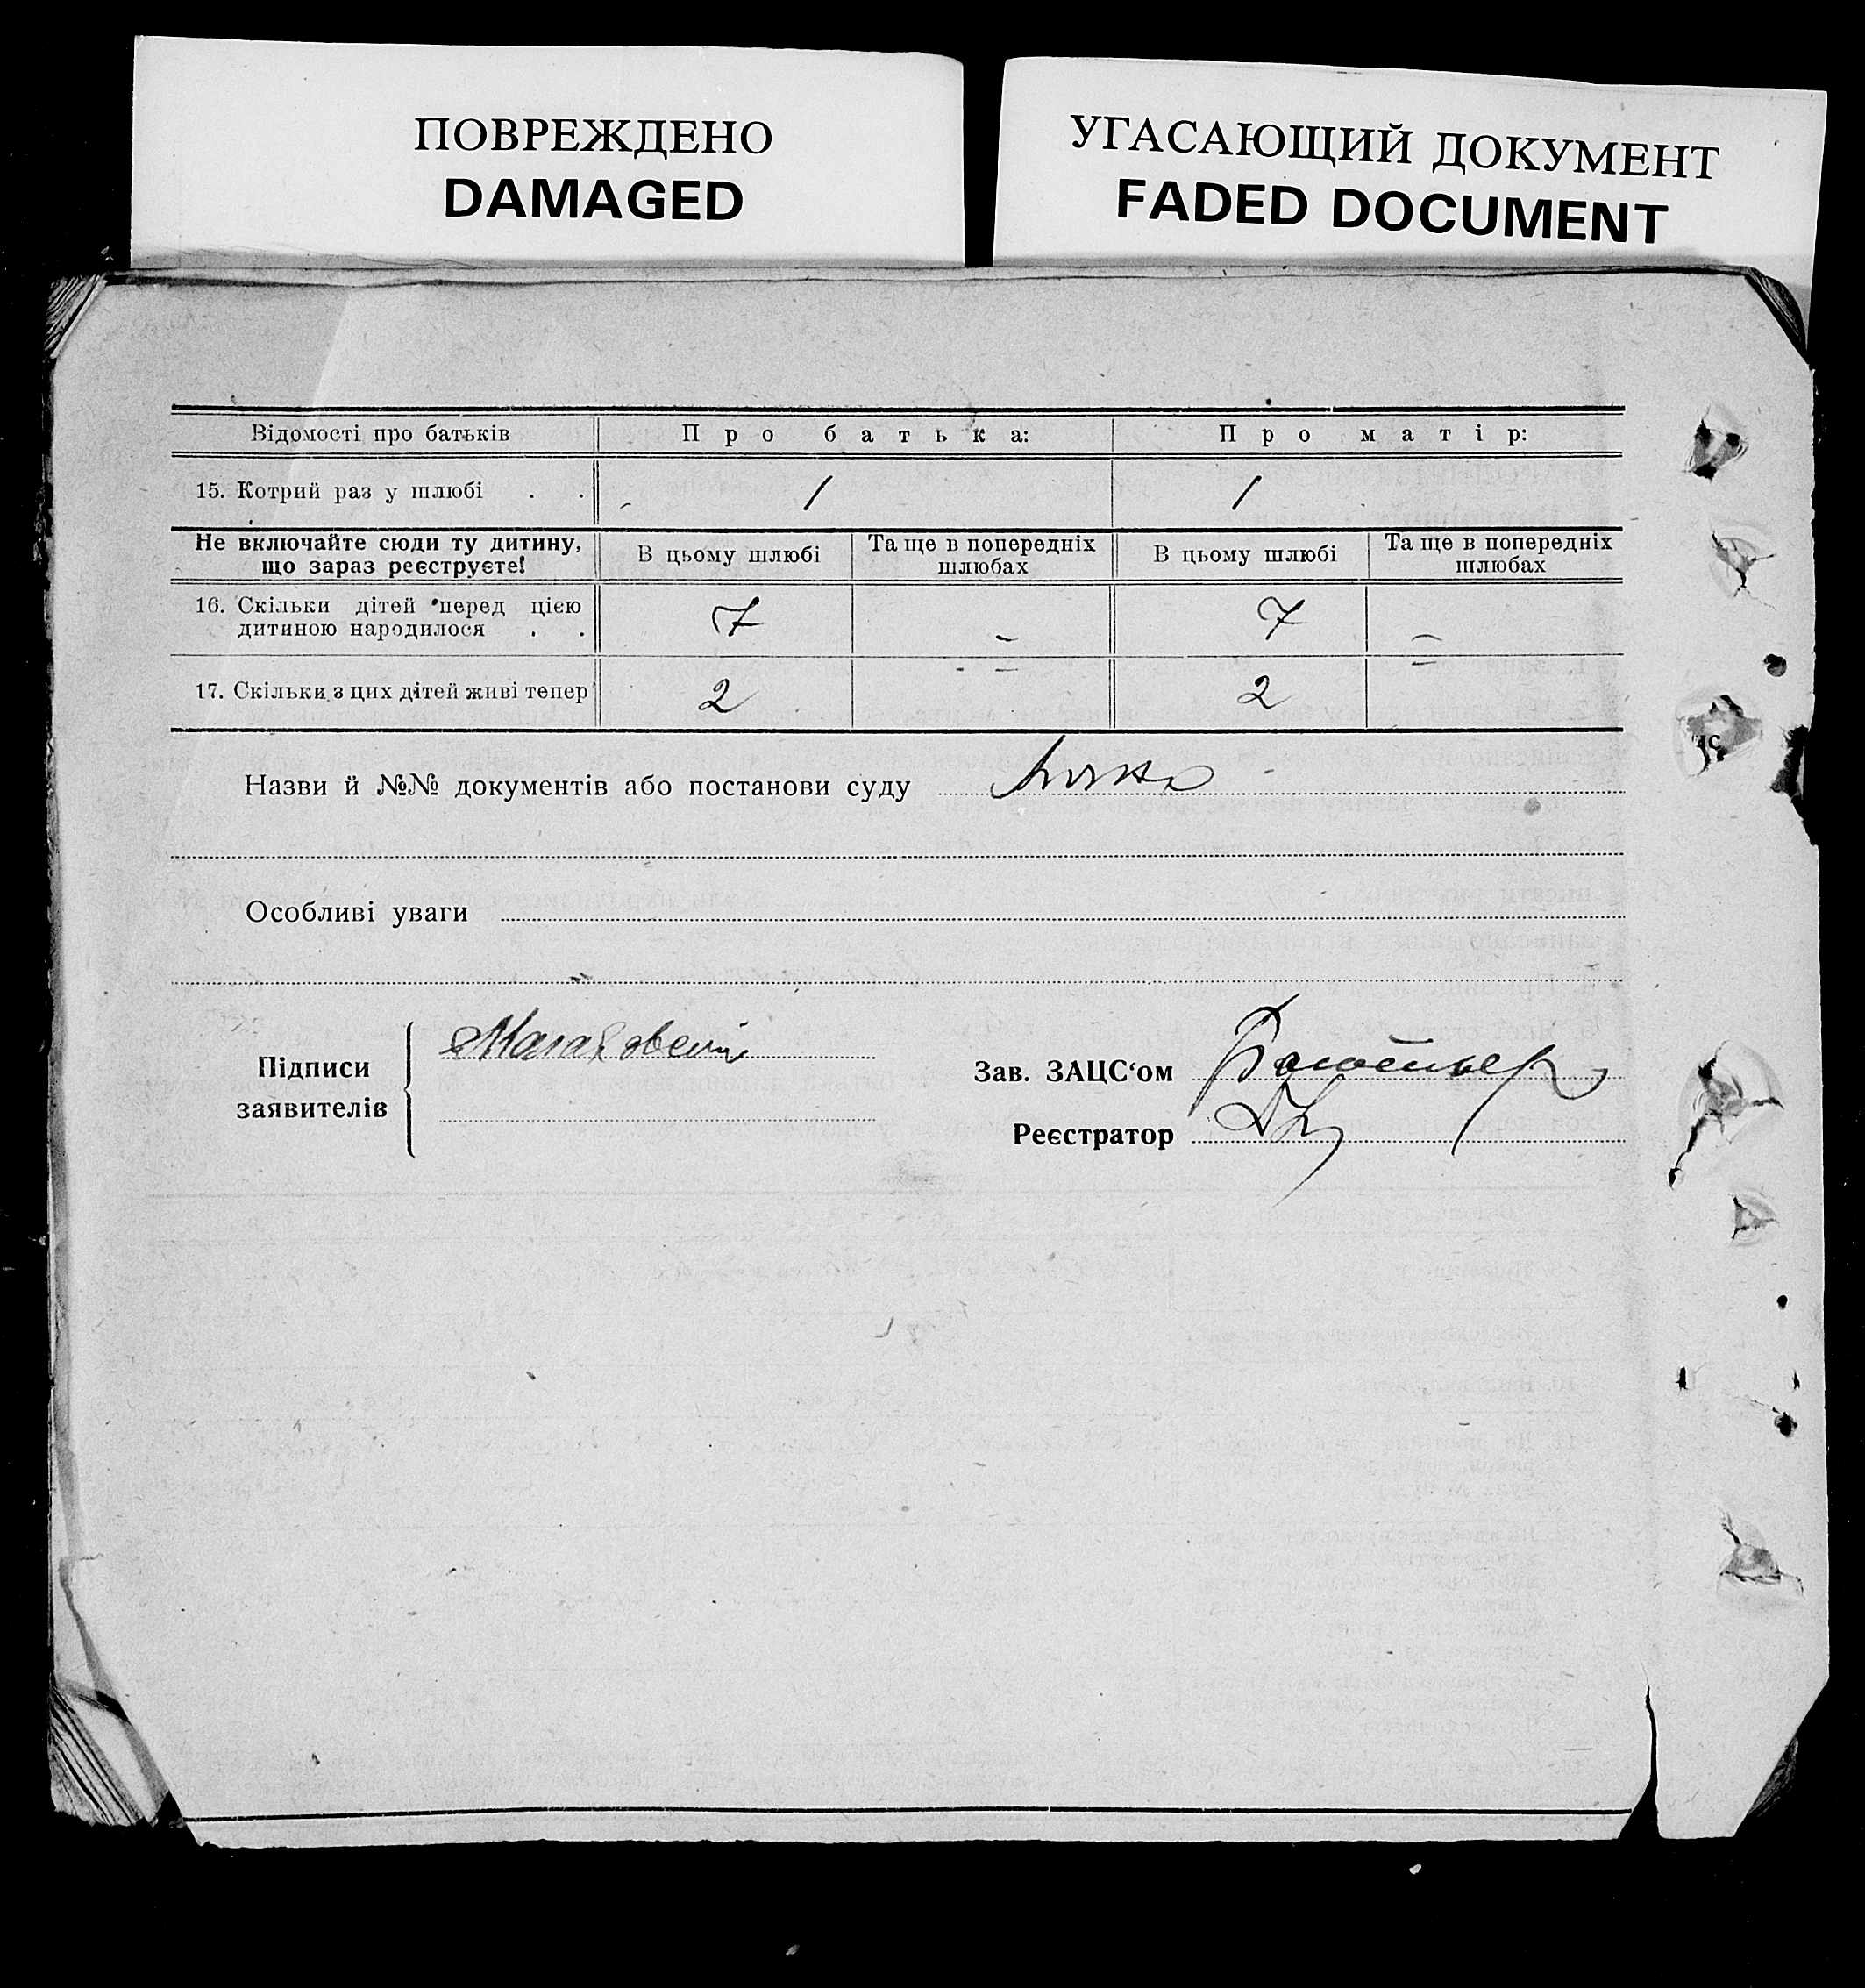 ПОВРЕЖДЕНО
DAMAGED
УГАСАЮЩИЙ ДОКУМЕНТ
FADED DOCUMENT
Відомості про батьків Про батька: Про матір:
15. Котрий раз у шлюбі . . 1 1
Не включайте сюди ту дитину, що зараз реєструєте! В цьому шлюбі Та ще в попередніх шлюбах В цьому шлюбі Та ще в попередніх шлюбах
16. Скільки дітей перед цією дитиною народилося . . 7 – 7 –
17. Скільки з цих дітей живі тепер 2 – 2 –
Назви й №№ документів або постанови суду
Особливі уваги
Підписи заявителів
Зав. ЗАЦС‘ом
Реєстратор